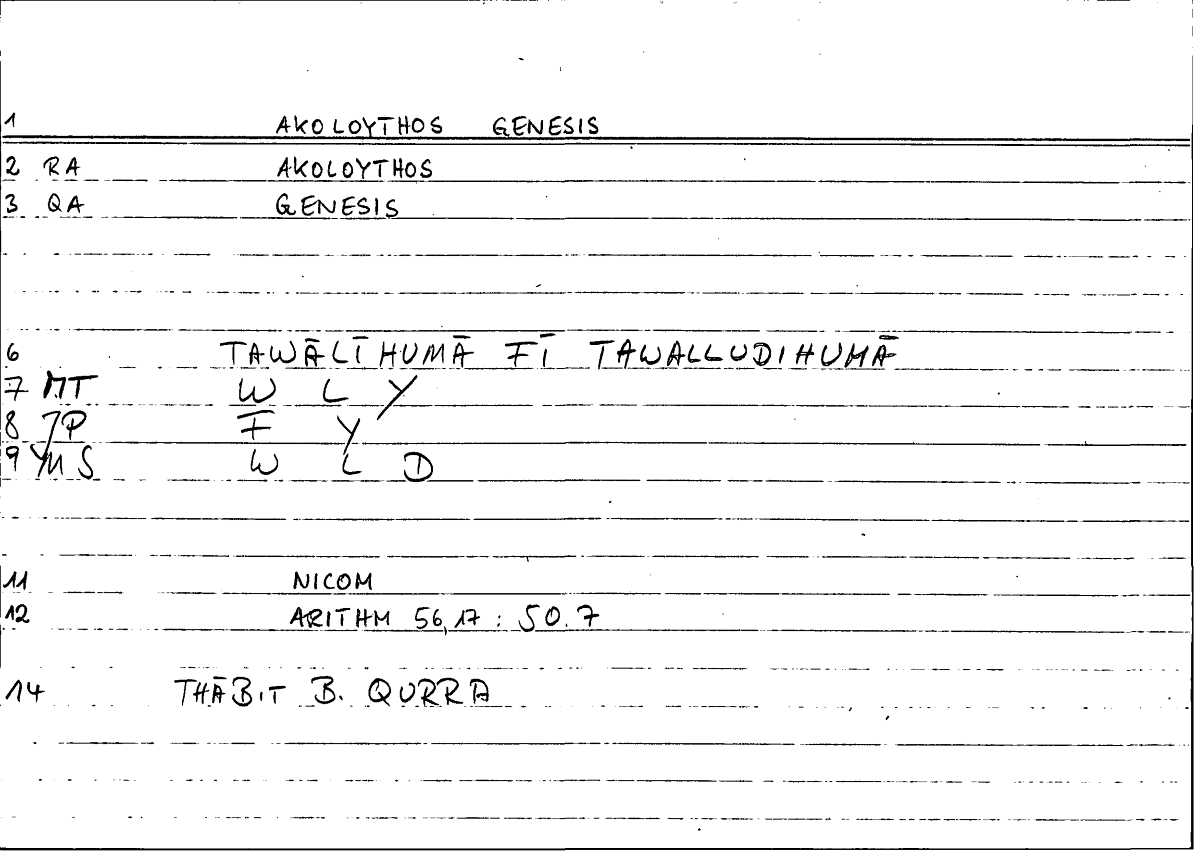 1 AKOLOYTHOS GENESIS
2 RA AKOLOYTHOS
3 QA GENESIS
6 TAWĀLĪHUMĀ FĪ TAWALLUDIHUMĀ
7 MT W L Y
8 JP F Y
9 YMS W L D
11 NICOM
12 ARITHM 56,17 : 50.7
14 THĀBIT B. QURRA